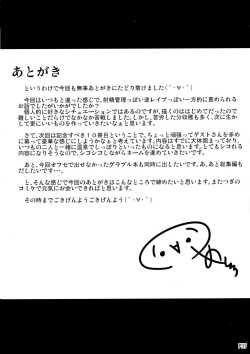 あとがき
というわけで今回も無事あとがきにたどり着けました(｀・∀・´)
今回はいつもと違った感じで、射精管理っぽい逆レイプっぽい一方的に責められる
お話でしたがいかがでしたか？
個人的に好きなシチュエーションではあるのですが、描くのははじめてだったので
難しいことだらけでなかなか苦戦しました。しかし、苦労した分収穫も多く、次に生か
して更にいいものを作っていきたいなぁと思います。
さて、次回は記念すべき10冊目ということで、ちょっと頑張ってゲストさんを多め
に募って豪華な感じにしようかなぁと考えています。内容はすでに大体固まっており、
いつもの二人と一緒に温泉でしっぽりと…といったものになると思います。とてもシコれる
内容になりそうなので、シコシコしながらネームを進めていきたいと思います。
あ、今回オフセで出せなかったグラブル本も同時に出したいです。あ、あと総集編も
だしたいです…。
と、そんな感じで今回のあとがきはこんなところで締めたいと思います、またつぎの
コミケで元気にお会いできればと思います。
その時までごきげんようごきげんよう(｀・∀・´)